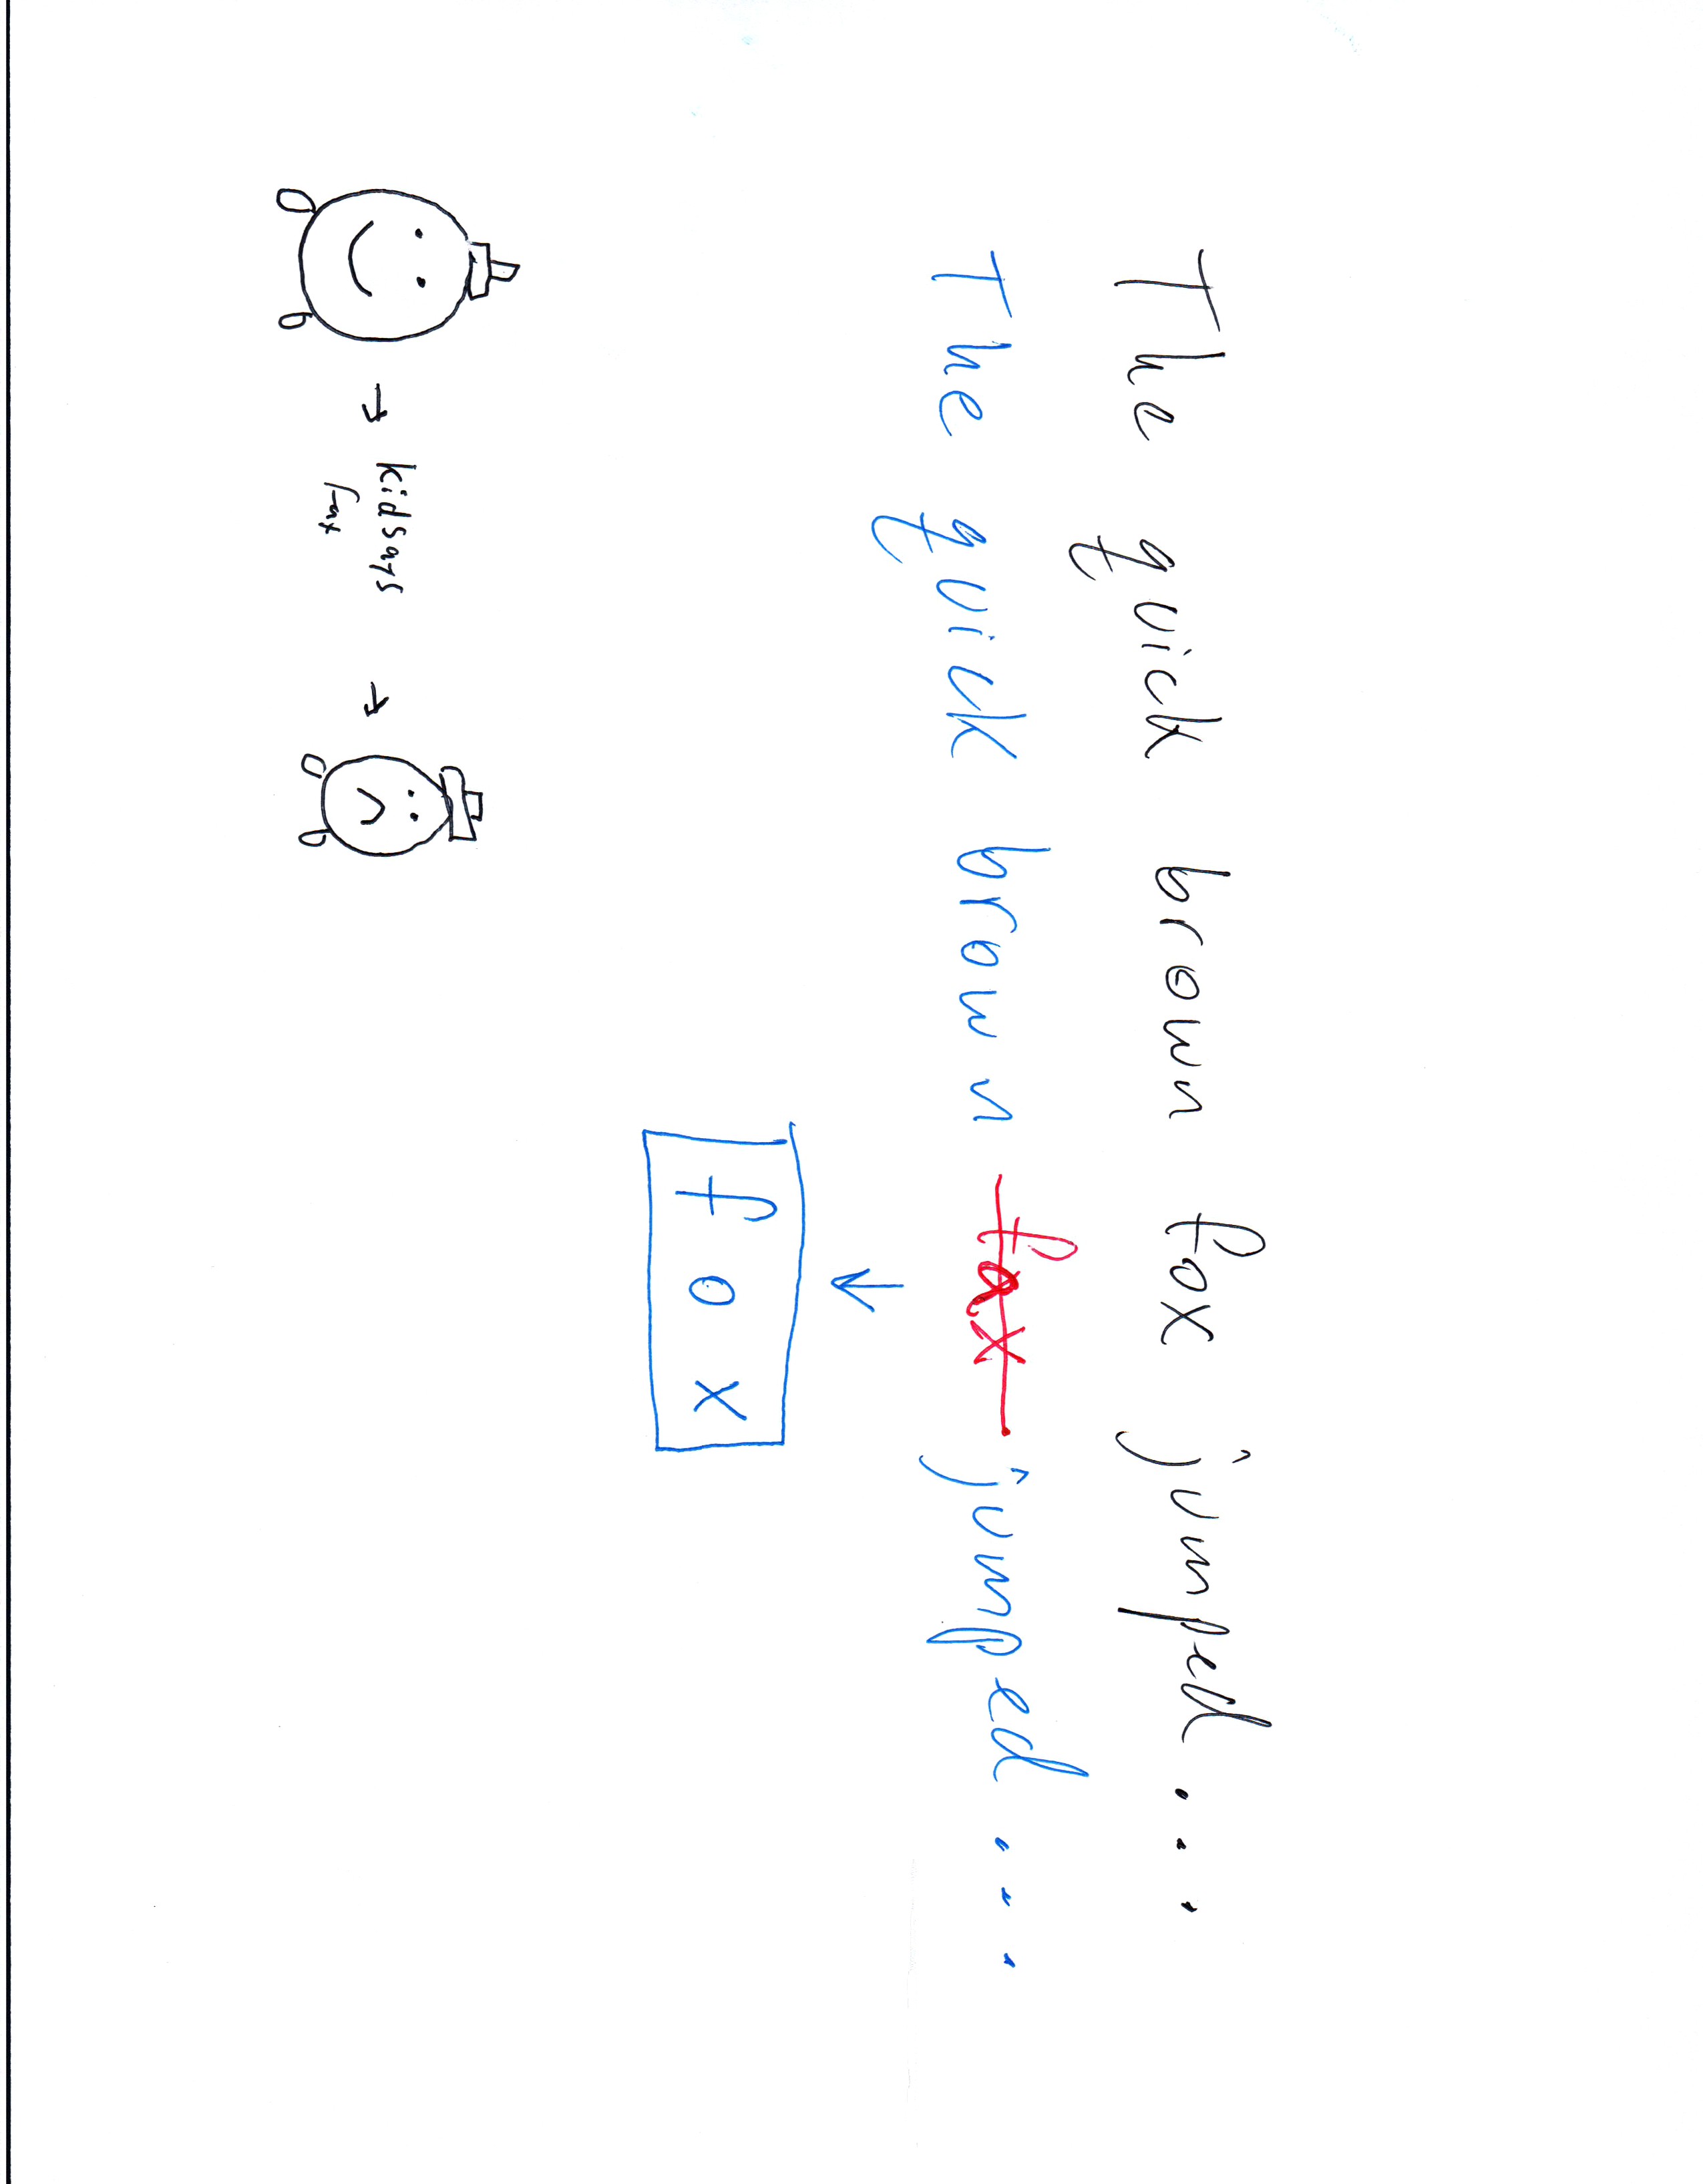 The quick brown fox jumped...
The quick brown fax jumped....
fox
kid says
fat